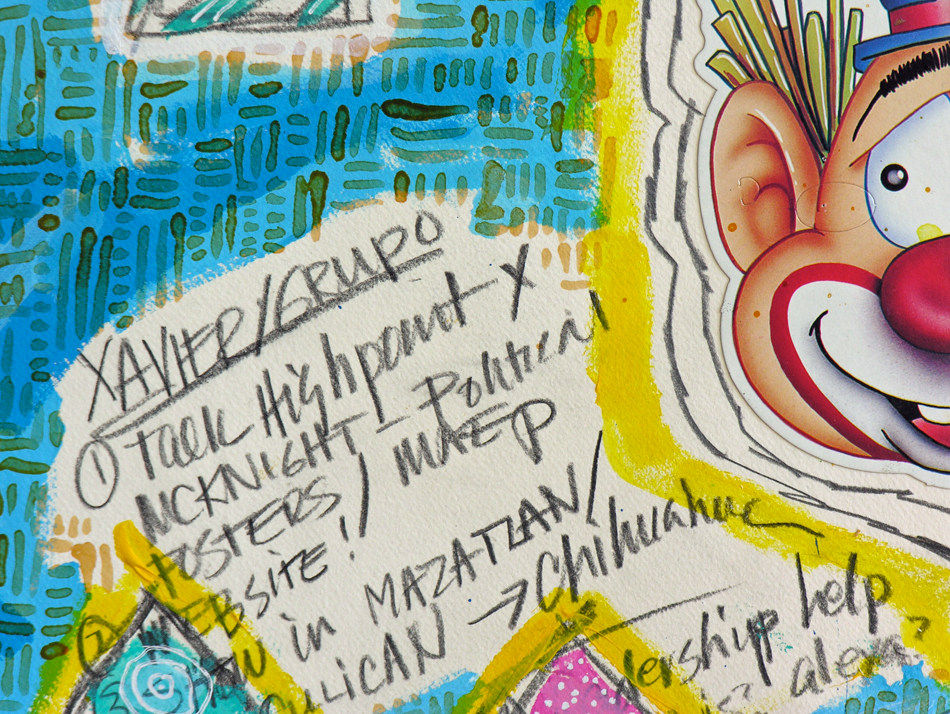 XAVIER/GRUPO
① Talk Highpoint X
MCKNIGHT - Political
POSTERS/ MAEP
WEBSITE!
② in MAZATLAN/
CULICAN → Chihuahua
help